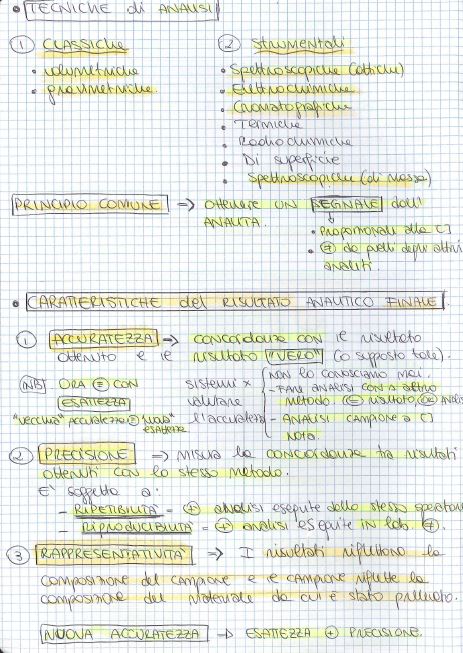 • TECNICHE di ANALISI
① CLASSICHE
• volumetriche
• gravimetriche.
② strumentali
• Spettroscopiche (ottiche)
• Elettrochimiche
• Cromatografiche
• Termiche
• Radiochimiche
• Di superficie
• Spettroscopiche (di massa)
PRINCIPIO COMUNE => ottenere un SEGNALE dall'
ANALITA.
• Proporzionali alla []
• ≠ da quelli degli altri
analiti.
• CARATTERISTICHE del RISULTATO ANALITICO FINALE.
① ACCURATEZZA => concordanza con il risultato
ottenuto e il risultato "VERO" (o supposto tale).
(NB) ORA = CON
ESATTEZZA
"vecchia" accuratezza = "nuova"
esattezza
sistemi x
valutare
l'accuratezza
NON lo conosciamo mai.
- FARE ANALISI CON 1 altro
metodo. (= risultato OK ANALISI
- ANALISI CAMPIONE a []
NOTA.
② PRECISIONE => misura la concordanza tra risultati
ottenuti con lo stesso metodo.
E' soggetta a:
- RIPETIBILITÀ = + analisi eseguite dallo stesso operatore
- RIPRODUCIBILITÀ = + analisi eseguite in lab ≠.
③ RAPPRESENTATIVITA' => I risultati riflettono la
composizione del campione e il campione riflette la
composizione del materiale da cui è stato prelevato.
NUOVA ACCURATEZZA -> ESATTEZZA + PRECISIONE.